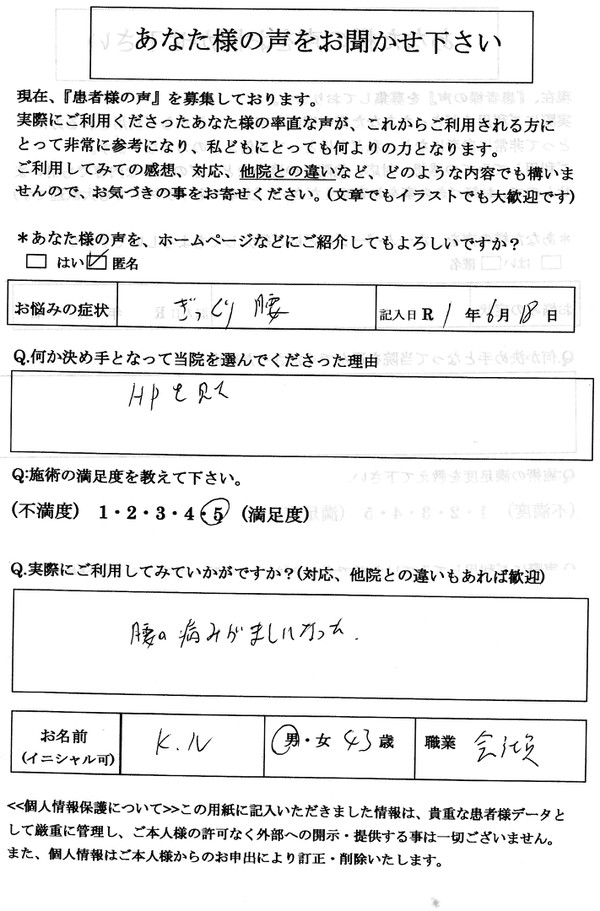 あなた様の声をお聞かせ下さい
現在、『患者様の声』を募集しております。
実際にご利用くださったあなた様の率直な声が、これからご利用される方に
とって非常に参考になり、私どもにとっても何よりの力となります。
ご利用してみての感想、対応、他院との違いなど、どのような内容でも構いま
せんので、お気づきの事をお寄せください。(文章でもイラストでも大歓迎です)
*あなた様の声を、ホームページなどにご紹介してもよろしいですか?
□ はい ☑ 匿名
お悩みの症状 ぎっくり腰 記入日 R 1 年 6 月 18 日
Q.何か決め手となって当院を選んでくださった理由
HPを見て
Q:施術の満足度を教えて下さい。
(不満度) 1・2・3・4・5 (満足度)
Q.実際にご利用してみていかがですか?(対応、他院との違いもあれば歓迎)
腰の痛みがましになった.
お名前 K.N 男・女 43 歳 職業
(イニシャル可)
<<個人情報保護について>>この用紙に記入いただきました情報は、貴重な患者様データと
して厳重に管理し、ご本人様の許可なく外部への開示・提供する事は一切ございません。
また、個人情報はご本人様からのお申出により訂正・削除いたします。